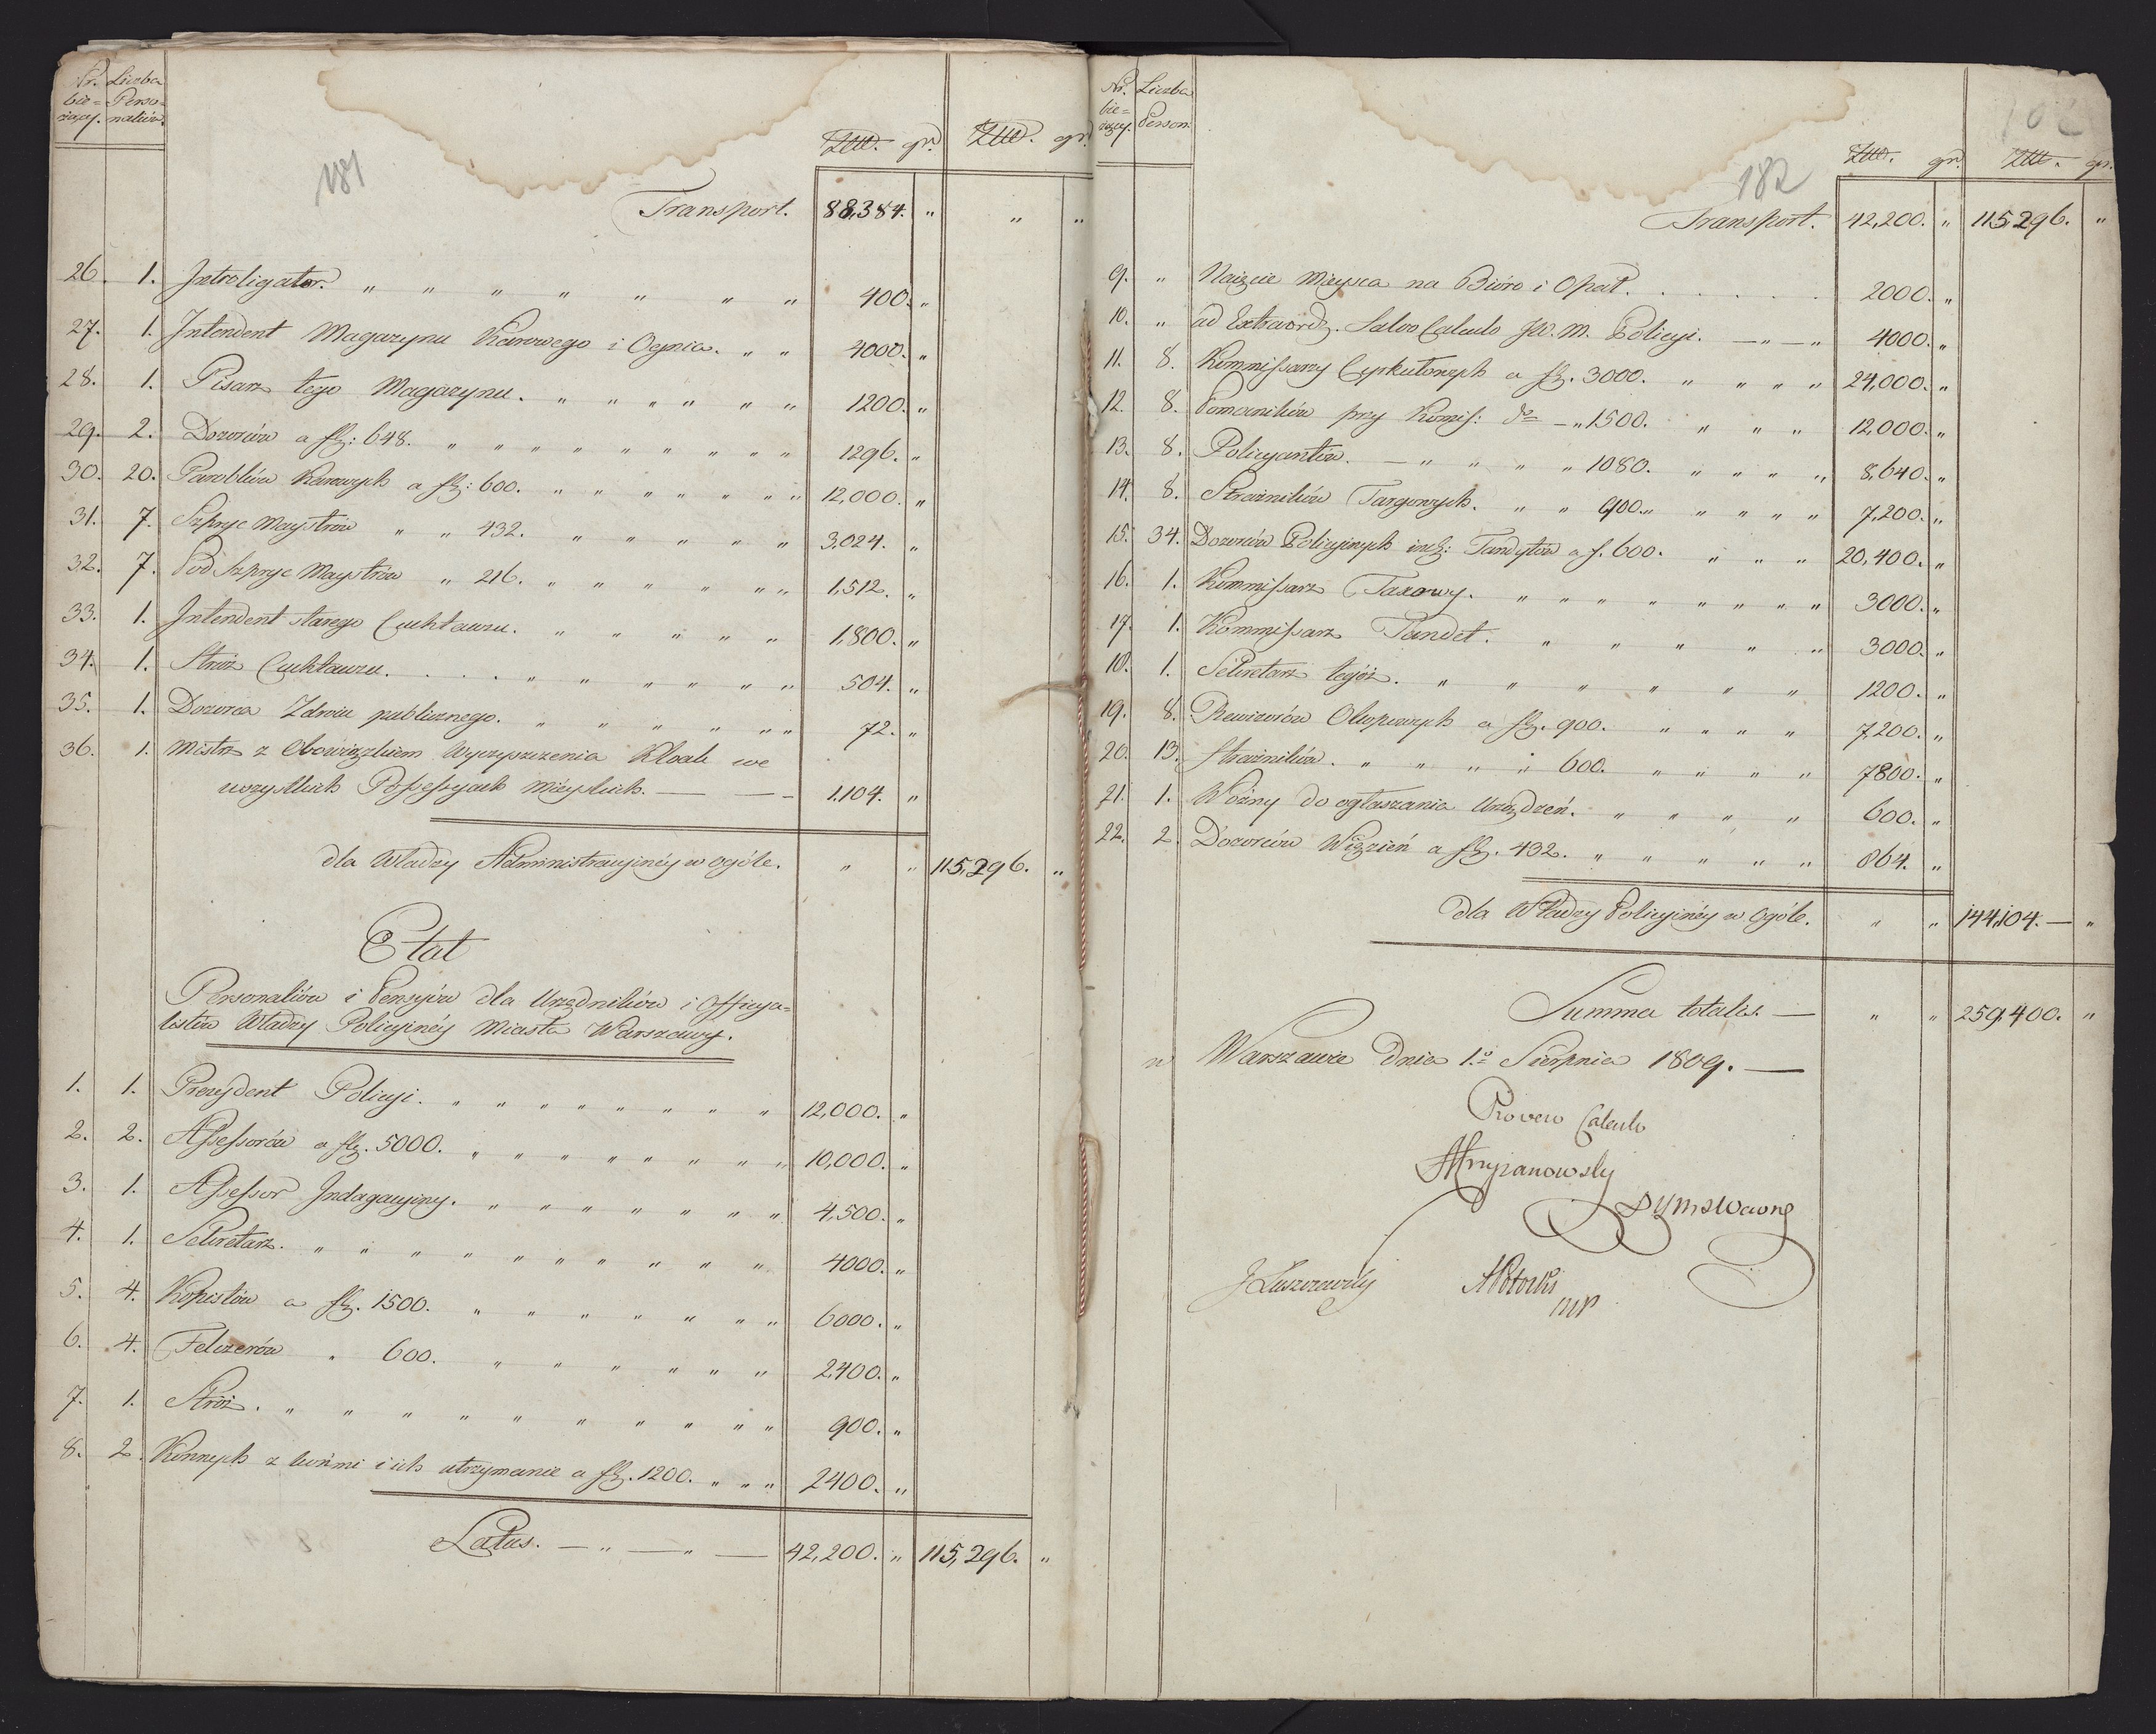 Nr. Liczba
bie= Perso=
żący. naliów.
Złł. gr. Złł. gr.
181
Transport. 88,384. " " "
26. 1. Introligator. " " " " " " " 400. "
27. 1. Intendent Magazynu Karowego i Ognia. " " 4000. "
28. 1. Pisarz tego Magazynu. " " " " " " 1200. "
29. 2. Dozorców a fl: 648. " " " " " " " " " 1296. "
30. 20. Parobków Karowych a fl: 600. " " " " " " " 12,000. "
31. 7. Szpryc Maystrów " " 432. " " " " " 3,024. "
32. 7. Pod Szpryc Maystrów " 216. " " " " " " 1,512. "
33. 1. Intendent starego Cuchtauzu. " " " " " 1,800. "
34. 1. Stróż Cuchtauzu. . . . " " " " " " 504. "
35. 1. Dozorca Zdroiu publicznego. " " " " " " 72. "
36. 1. Mistrz z Obowiązkiem Wyczyszczenia Kloak we
wszystkich Possessyach Mieyskich. — — 1,104. "
dla Władzy Administracyinéy w ogóle. " " 115,296. "
Etat
Personaliów i Pensyiów dla Urzędników i Officya=
listów Władzy Policyinéy Miasta Warszawy.
1. 1. Prezydent Policyi. " " " " " " " " 12,000. "
2. 2. Assessorów a fl. 5000. " " " " " " " " 10,000. "
3. 1. Assessor Indagacyiny. " " " " " " " 4,500. "
4. 1. Sekretarz. " " " " " " " " " " 4000. "
5. 4. Kopistów a fl. 1500. " " " " " " " 6000. "
6. 4. Felczerów " 600. " " " " " " 2400. "
7. 1. Stróż. " " " " " " " " " " 900. "
8. 2. Konnych z końmi i ich utrzymanie a fl. 1200. " " " 2400. "
Latus. — " — " — 42,200. " 115,296. "
Nr. Liczba
bie= Person:
żący.
102
182
Złł. gr. Złł. gr.
Transport. 42,200. " 115,296. "
9. " Naięcie Mieysca na Bióro i Opał. . . . . . 2000. "
10. " ad Extraord. Salvo Calculo JW. M. Policyi. — " — " 4000. "
11. 8. Kommissarzy Cyrkułowych a fl. 3000. " " " " 24,000. "
12. 8. Pomocników przy Komiss: do — " 1500. " " " 12,000. "
13. 8. Policyantów. — " " " " 1080. " " " " 8,640. "
14. 8. Strażników Targowych. " " 900. " " " " " 7,200. "
15. 34. Dozorców Policyinych incl: Tandytów a f. 600. " " " 20,400. "
16. 1. Kommissarz Taxowy. " " " " " " " " 3000. "
17. 1. Kommissarz Tandet. " " " " " 3000. "
18. 1. Sekretarz tegóż. " " " " " " 1200. "
19. 8. Rewizorów Okopowych a fl. 900. " " " " 7,200. "
20. 13. Strażników. " " " " 600. " " " " 7800. "
21. 1. Woźny do ogłaszania Urządzeń. " " " " 600. "
22. 2. Dozorców Więzień a fl. 432. " " " " " 864. "
dla Władzy Policyinéy w Ogóle. " " 144,104. — "
Summa totalis. — " " 259,400. "
w Warszawie dnia 1.o Sierpnia 1809. —
Pro vero Calculo
Szymanowsky
J Łuszczewsky APotocki
mp